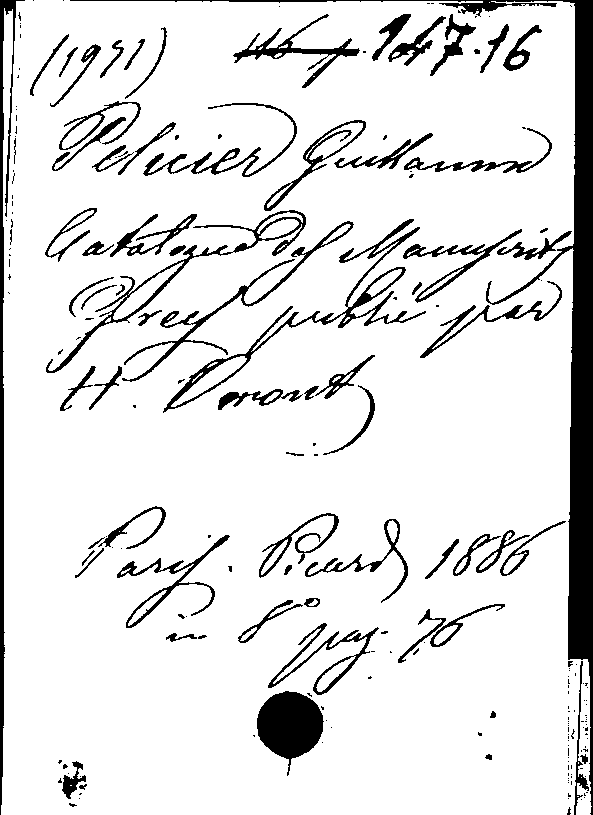 (1971) 147.16
Pelicier Guillaume
Catalogue des Manuscrits
Grecs publié par
H. Omont
Paris. Picard 1886
in 8º pag. 76